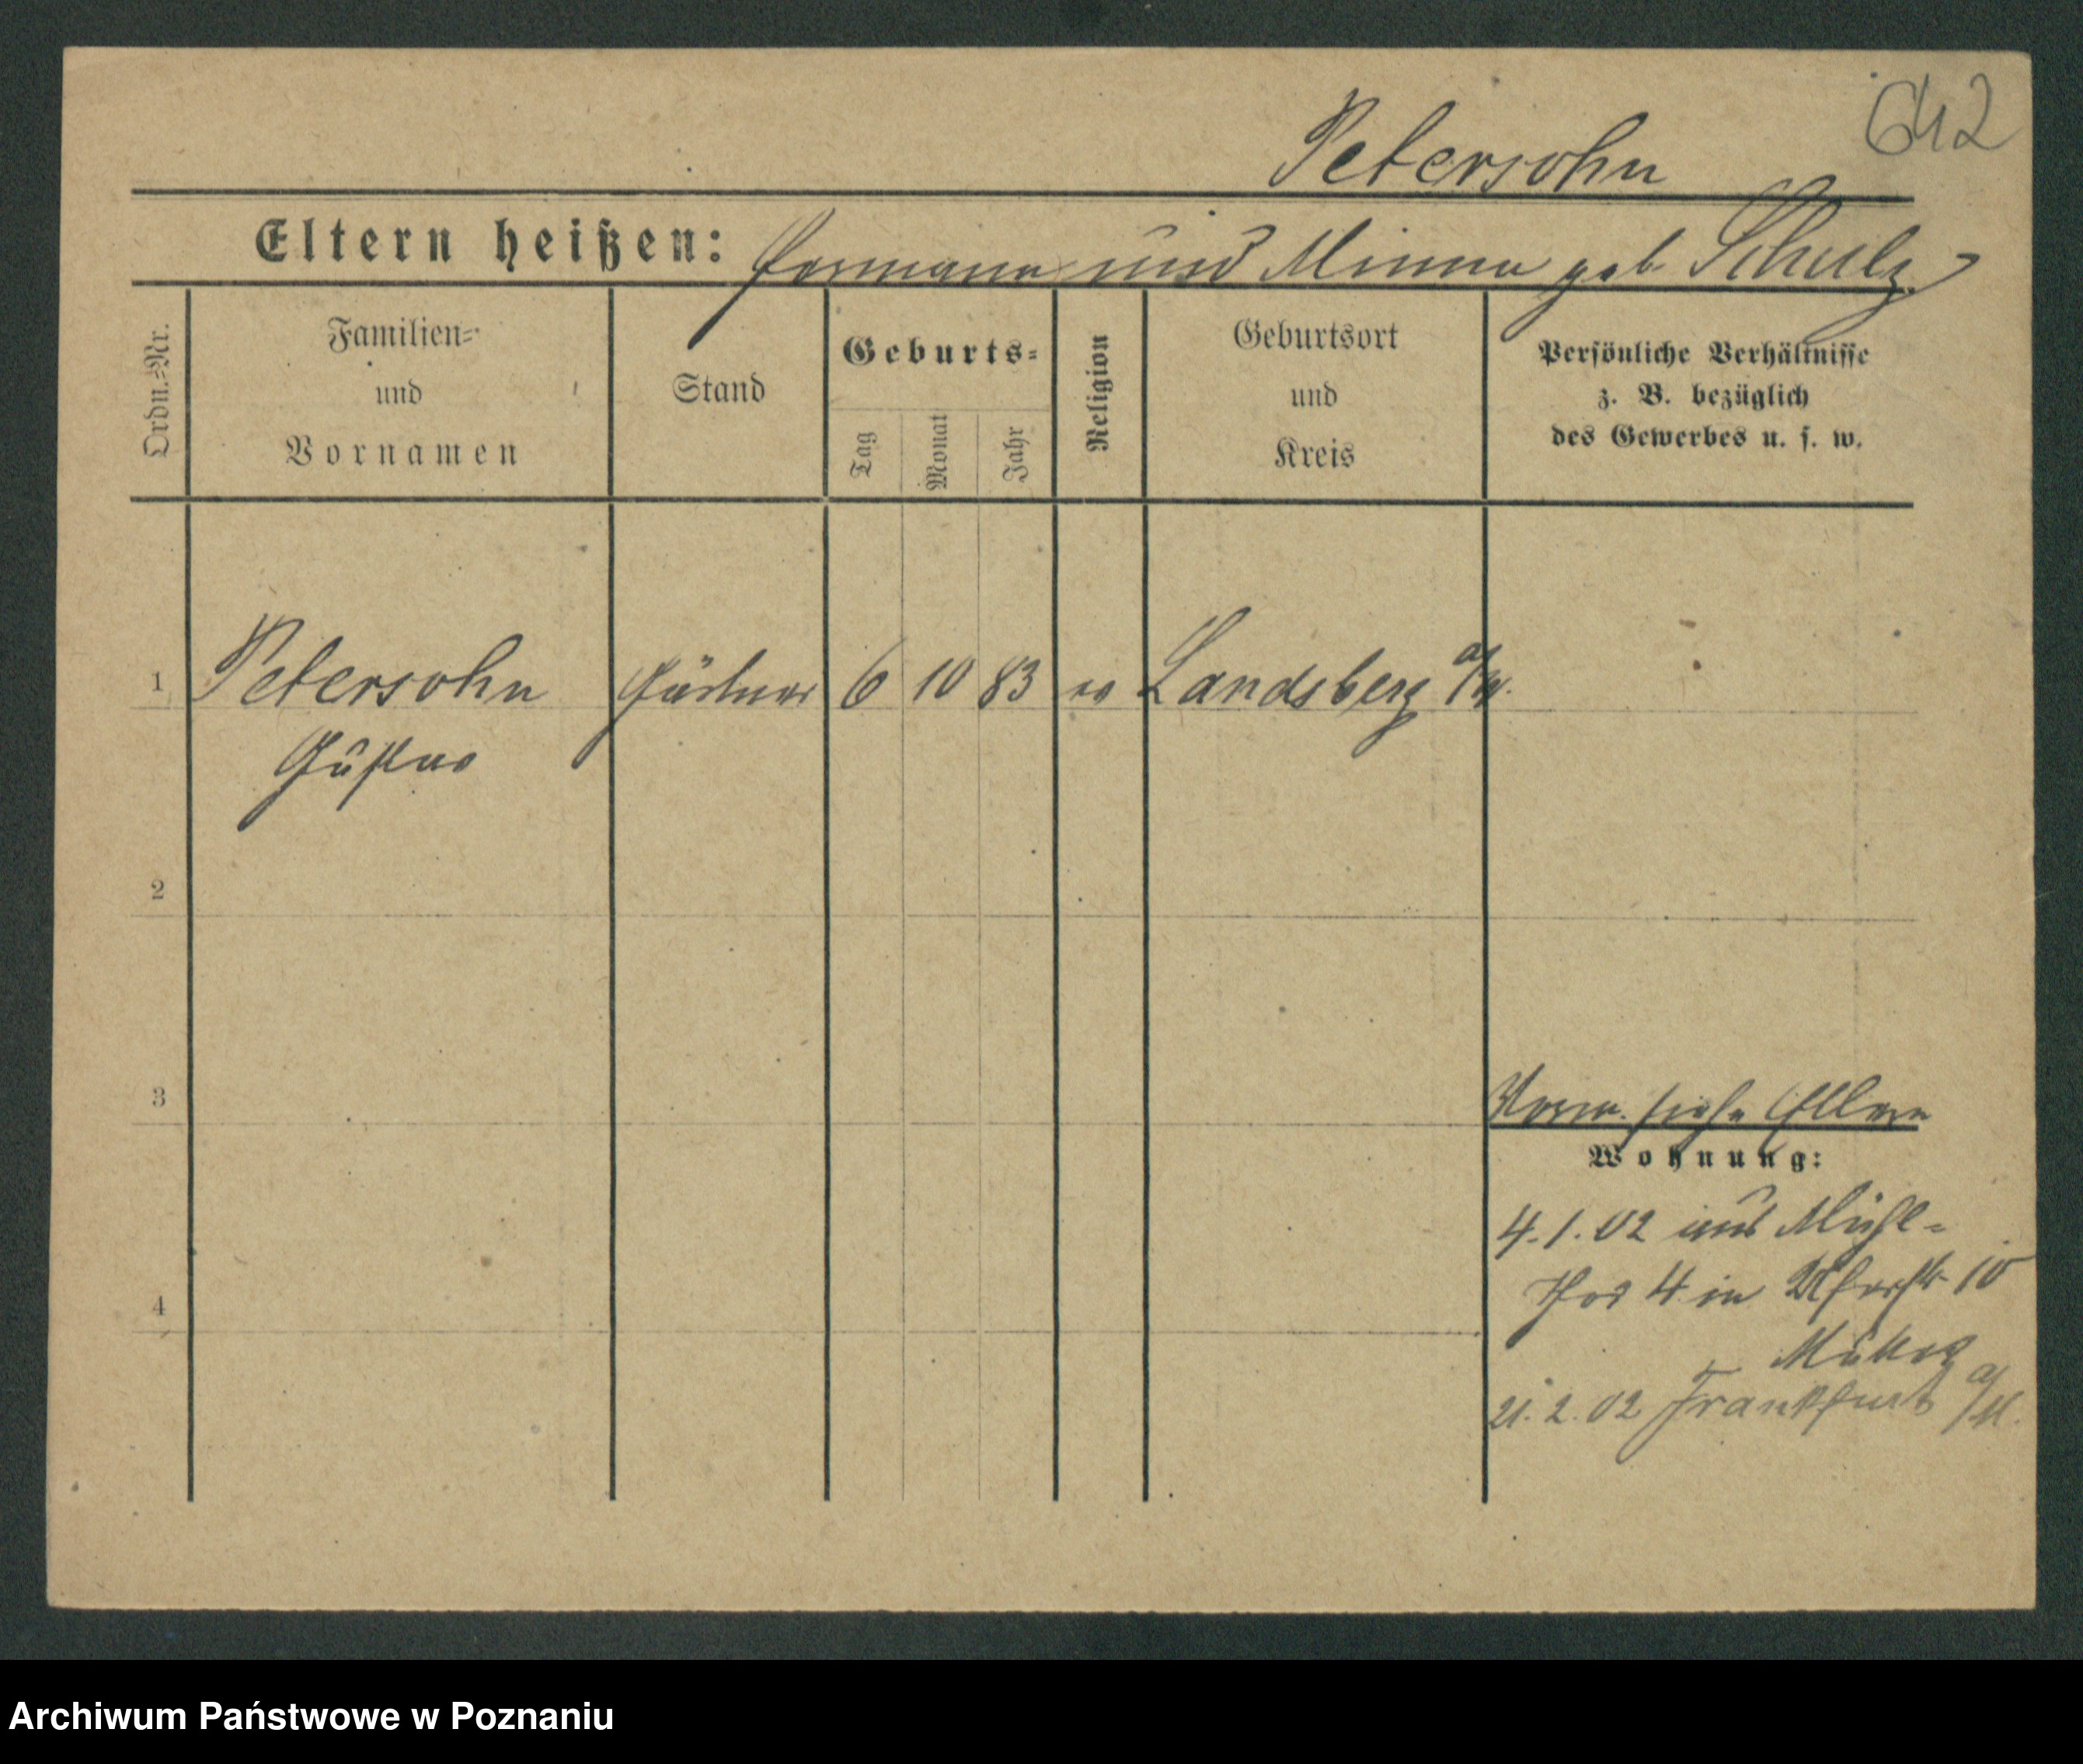 642
Petersohn
Eltern heißen: Hermann und Minna geb. Schulz
Ordn.-Nr.
Familien-
und
Vornamen
Stand
Geburts-
Tag
Monat
Jahr
Religion
Geburtsort
und
Kreis
Persönliche Verhältnisse
z. B. bezüglich
des Gewerbes u. s. w.
1 Petersohn Gärtner 6 10 83 ev Landsberg a/W.
Gustav
2
3
Vorm. siehe Eltern
Wohnung:
4.1.02 aus Mühl-
thor 4 in
4
21.2.02 Frankfurt a/M.
Archiwum Państwowe w Poznaniu